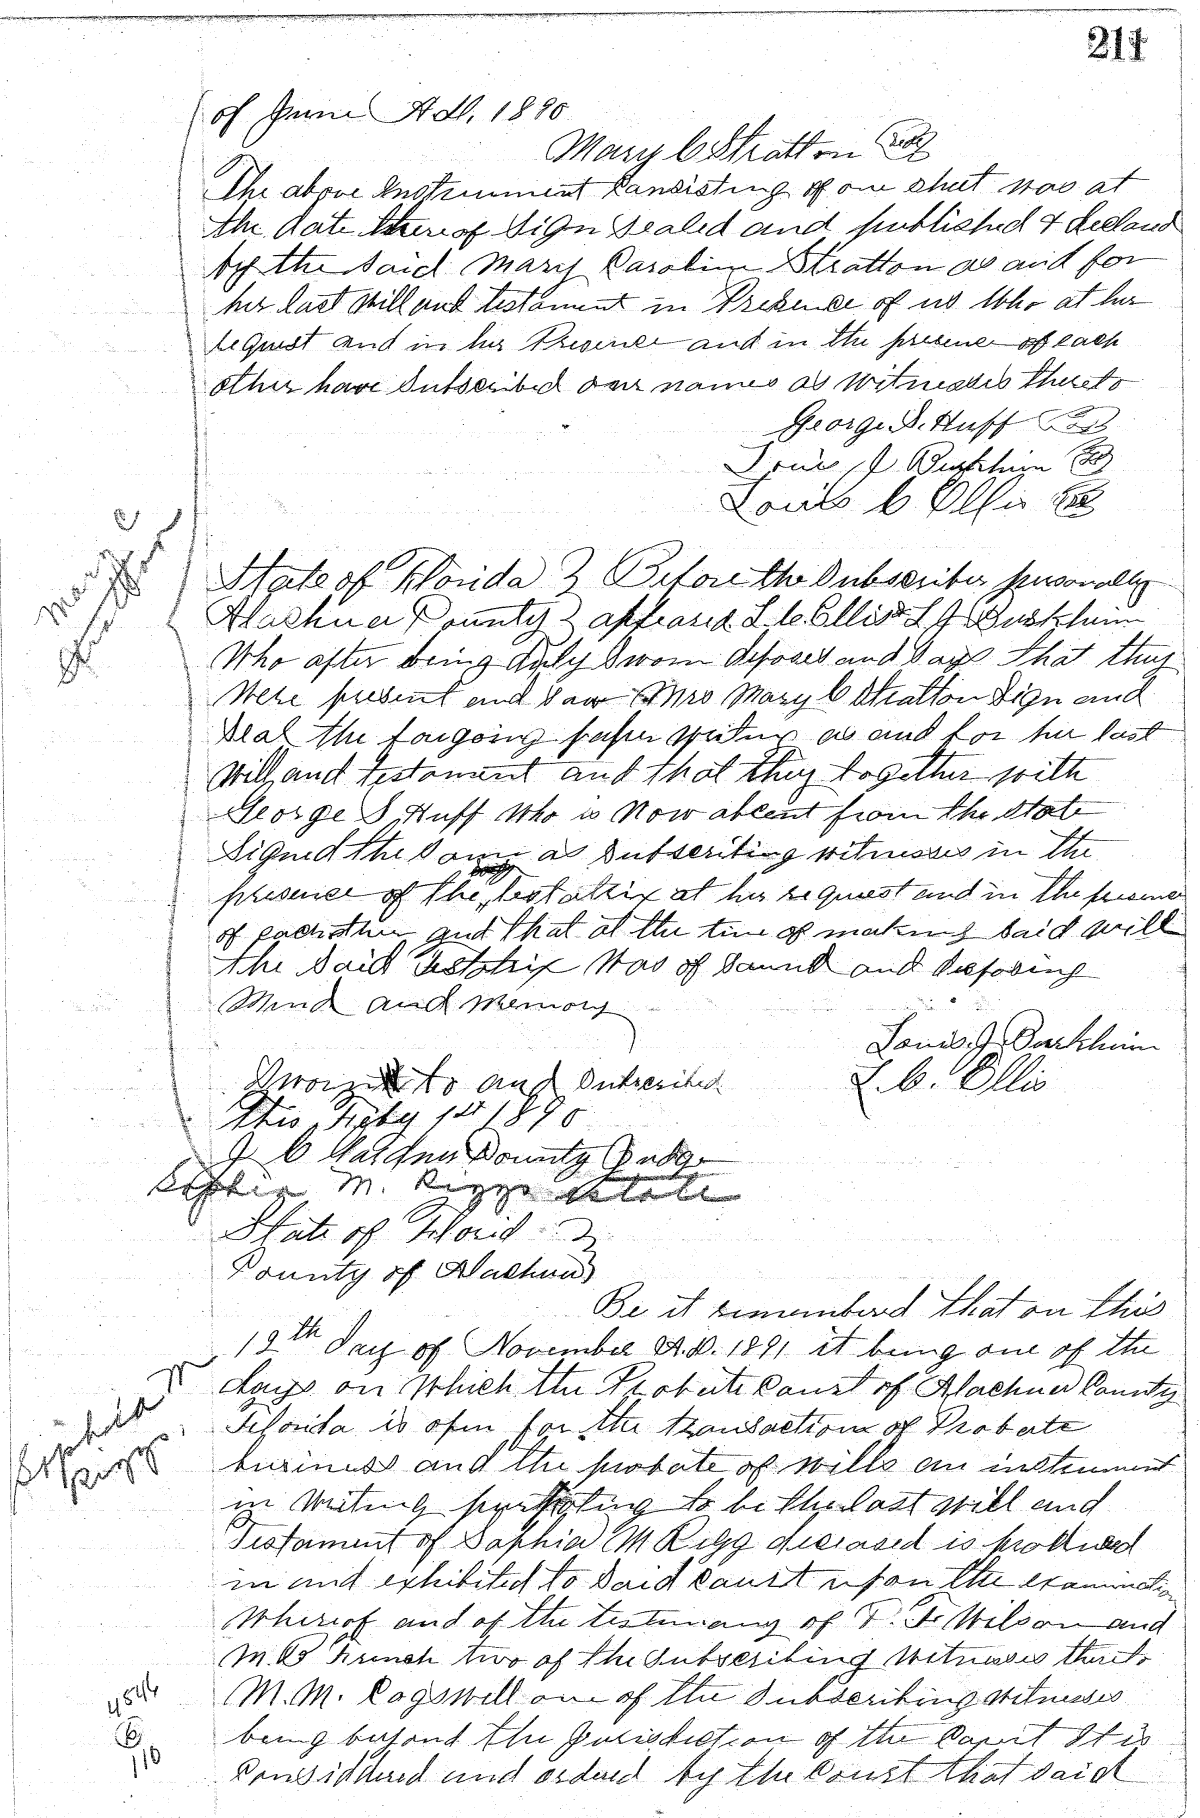 211
of June A.D. 1890
Mary C Stratton Seal
The above Instrument Consisting of one sheet was at
the date thereof Sign Sealed and published & declard
by the said Mary Caroline Stratton as and for
her last Will and testament in Presence of us Who at her
request and in her Presence and in the presence of each
other have Subscribed our names as Witnesses thereto
George S. Huff
Louis J Burkhim
Louis C Ellis
Mary C
Stratton
State of Florida } Before the Subscriber personally
Alachua County } appeared L. C. Ellis & L J Burkhim
Who after being duly Sworn deposes and Says that they
Were present and Saw Mrs Mary C Stratton Sign and
Seal the forgoing paper writing as and for her last
Will and testament and that they together with
George S Huff Who is Now absent from the State
Signed the Same as Subscribing witnesses in the
presence of the testatrix at her request and in the presence
of each other and that at the time of making Said will
the Said Testatrix Was of Sound and disposing
Mind and Memory
Louis J. Burkhim
L. C. Ellis
Sworn to and Subscribed
this Feby 1st 1890
J C Gardner County Judge
Sophia M. Riggs Estate
State of Florid }
County of Alachua }
Be it remembered that on this
12th day of November A.D. 1891 it being one of the
days on Which the Probate Court of Alachua County
Florida is open for the transaction of Probate
business and the probate of wills an instrument
in Writing purporting to be the last will and
Testament of Sophia M Rigg deceased is produced
in and exhibited to Said Court upon the examination
Whereof and of the testimony of F. Wilson and
M. B French two of the Subscribing Witnesses thereto
M. M. Cogswell one of the Subscribing Witnesses
being beyond the Jurisdiction of the Court It is
Considdered and ordered by the Court that Said
Sophia M
Riggs.
4546
110